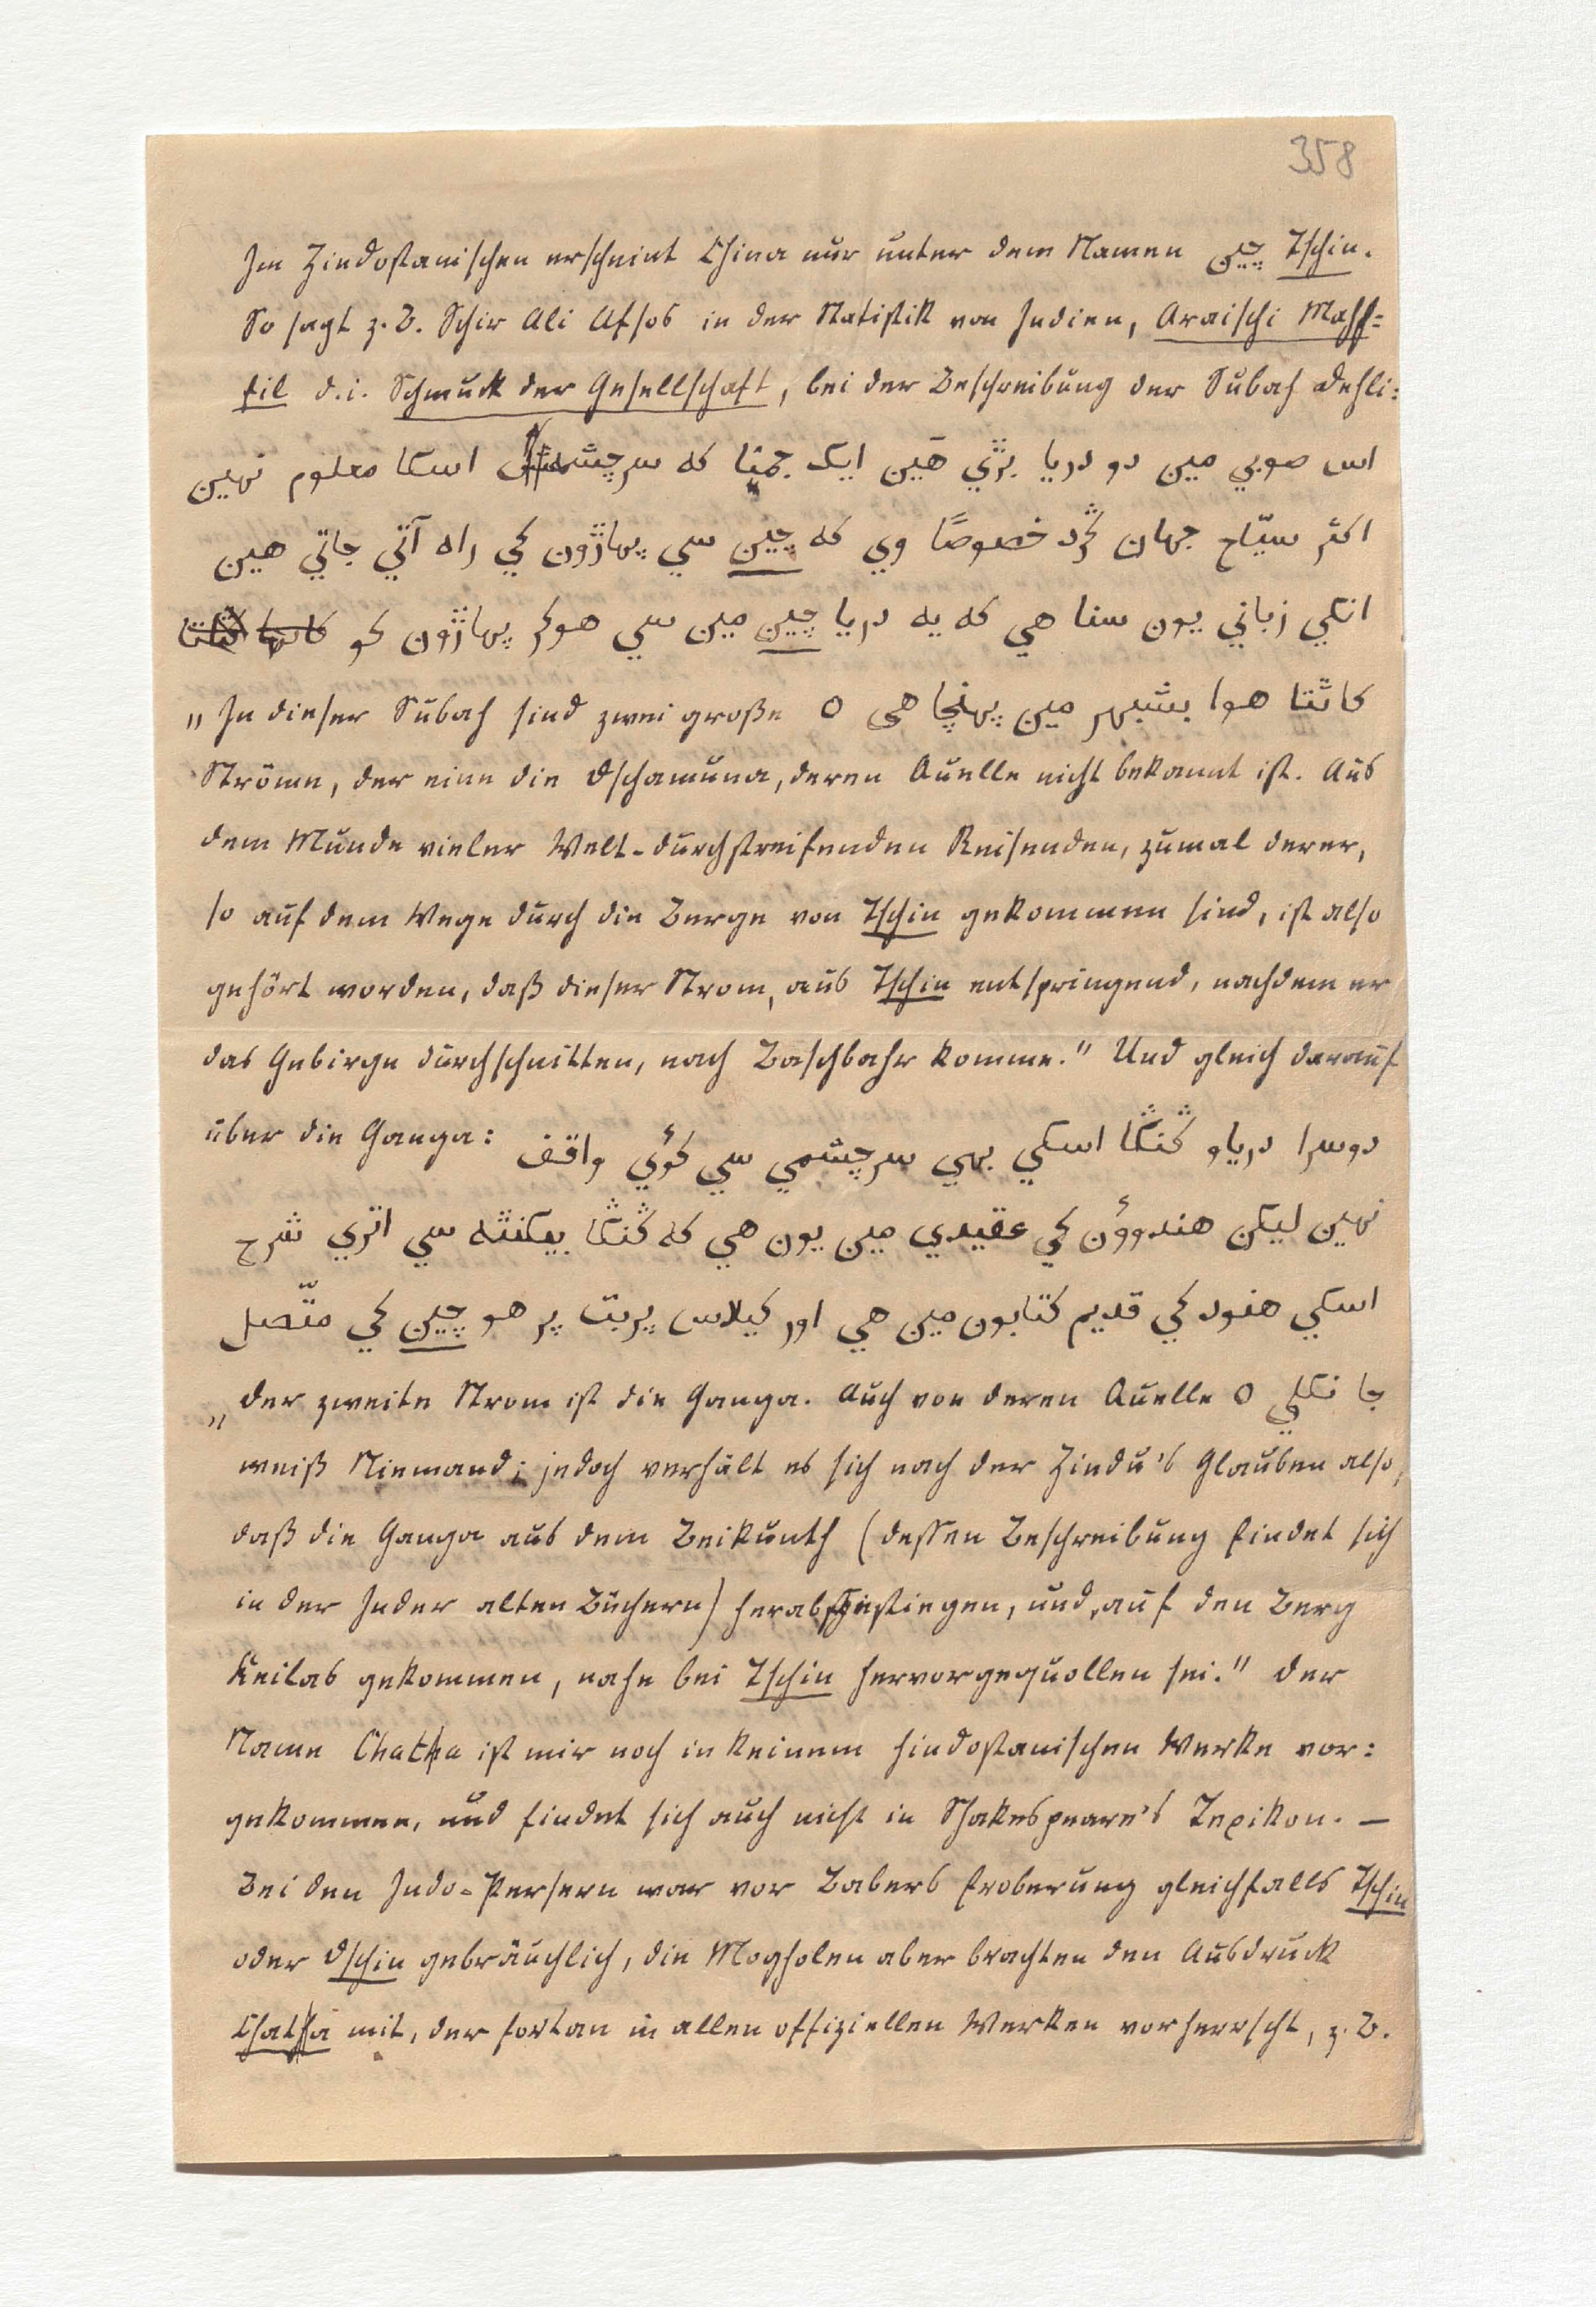 358
Im Hindostanischen erscheint China nur unter dem Namen چین Tschin.
So sagt z. B. Schir Ali Afsos in der Statistik von Indien, Araischi Mahf=
fil d. i. Schmuck der Gesellschaft, bei der Beschreibung der Subah Dehli:
اس صوبي مين دو دريا بڙي هَين ايک جمنا که سرچشمه اسکا معلوم نہين
اکثر سيّاح جہان گرد خصوصًا وي که چين سي پہاڙون کي راه آتي جاتي هين
انکي زباني يون سنا هي که يه دريا چين مين سي هوکر پہاڙون کو
„In dieser Subah sind zwei große o کاٿتا هوا بشبہر مين پہنچا هي
Ströme, der eine die Dschamuna, deren Quelle nicht bekannt ist. Aus
dem Munde vieler Welt-durchstreifenden Reisenden, zumal derer,
so auf dem Wege durch die Berge von Tschin gekommen sind, ist also
gehört worden, daß dieser Strom, aus Tschin entspringend, nachdem er
das Gebirge durchschnitten, nach Baschbahr komme." Und gleich darauf
über die Ganga: دوسرا درياو گنگا اسکي بهي سرچشمي سي کوئي واقف
نہين ليکن هندوؤن کي عقيدي مين يون هي که گنگا بيکنٿه سي اتري شرح
اسکي هنود کي قديم کتابون مين هي اور کيلاس پربت پر هو چين کي متّصل
„Der zweite Strom ist die Ganga. Auch von deren Quelle o جا نکلي
weiß Niemand; jedoch verhält es sich nach der Hindu's Glauben also,
daß die Ganga aus dem Beikunth (dessen Beschreibung findet sich
in der Inder alten Büchern) herabgestiegen, und, auf den Berg
Keilas gekommen, nahe bei Tschin hervorgequollen sei." Der
Name Chatha ist mir noch in keinem hindostanischen Werke vor=
gekommen, und findet sich auch nicht in Shakespeare's Lexikon. —
Bei den Indo-Persern war vor Babers Eroberung gleichfalls Tschin
oder Dschin gebräuchlich, die Mogholen aber brachten den Ausdruck
Chatha mit, der fortan in allen offiziellen Werken vorherrscht, z. B.